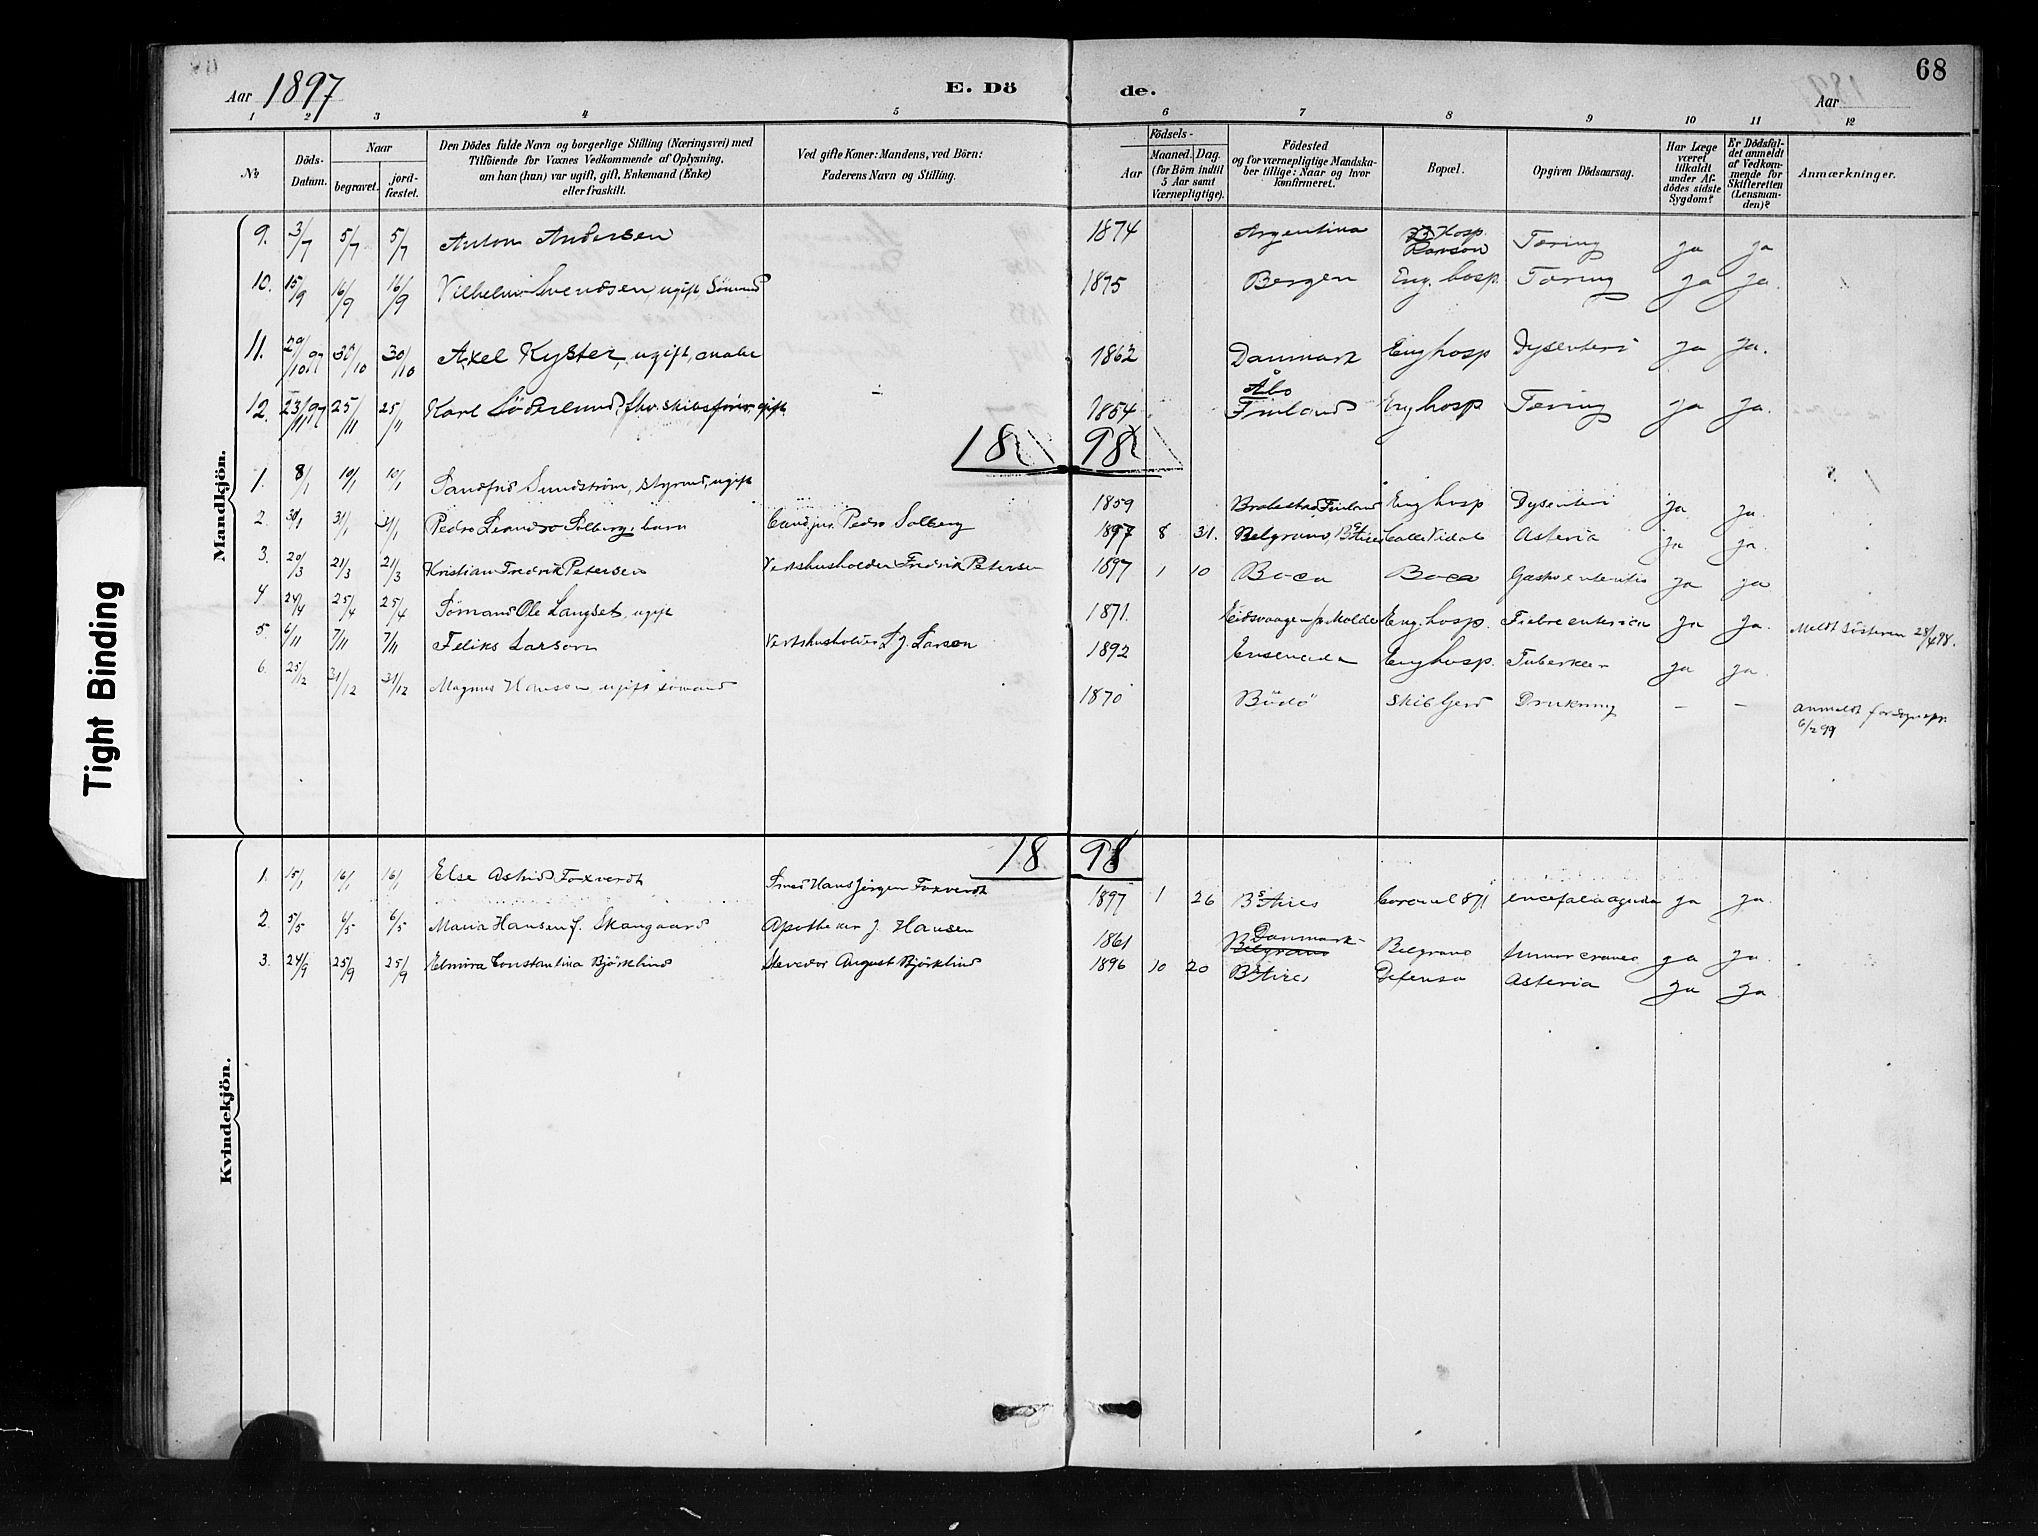 68
Aar 1897 E. Dö de. Aar
1 2 3 4 5 6 7 8 9 10 11 12
№ Döds-Datum. Naar begravet. jord-fæstet. Den Dödes fulde Navn og borgerlige Stilling (Næringsvei) med Tilföiende for Voxnes Vedkommende af Oplysning, om han (hun) var ugift, gift, Enkemand (Enke) eller fraskilt. Ved gifte Koner: Mandens, ved Börn: Faderens Navn og Stilling. Födsels- Aar Maaned. Dag. (for Börn indtil 5 Aar samt Værnepligtige). Födested og for værnepligtige Mandskaber tillige: Naar og hvor konfirmeret. Bopæl. Opgiven Dödsaarsag. Har Læge været tilkaldt under Afdödes sidste Sygdom? Er Dödsfaldet anmeldt af Vedkommende for Skifteretten (Lensmanden)? Anmærkninger.
Mandkjön.
9. 3/7 5/7 5/7 Anton Andersen 1874 Argentina Hosp. Rawson Tæring ja ja
10. 15/9 16/9 16/9 Vilhelm Svendsen, ugift, Sömand 1875 Bergen Eng. hosp. Tæring ja ja.
11. 29/10 97 30/10 30/10 Axel Kyster, ugift, 1862 Danmark Eng hosp Dysenteri ja ja.
12. 23/11 97 25/11 25/11 Karl Söderlund, fhv. skibsförer, gift - 1854 Åbo Finland Eng hosp Tæring ja ja.
1898
1. 8/1 10/1 10/1 Sandfrid Sundström, styrmd, ugift 1859 Brahestad, Finland Eng hosp Dysenteri ja ja.
2. 30/1 31/1 31/1 Pedro Leandro Solberg, barn Cand. jur. Pedro Solberg 1897 8 31. Belgrano, Bs Aires Calle Vidal Asteria ja ja.
3. 20/3 21/3 21/3 Kristian Fredrik Petersen Vertshusholder Fredrik Petersen 1897 1 10 Boca Boca Gastroenteritis ja ja
4 24/4 25/4 25/4 Sömand Ole Langset, ugift 1871. Eidsvaagen pr Molde Eng. hosp. Fiebre enterica ja ja. Meldt Sösteren 28/4 98.
5. 6/11 7/11 7/11 Feliks Larson Vertshusholder L. J. Larson 1892 Ensenada Eng hosp. Tuberkler ja ja.
6. 25/12 31/12 31/12 Magnus Hansen ugift sömand 1870 Bödö Skib Gerd Drukning - - anmeldt for Sognepr. 6/2 99
Kvindekjön.
1898
1. 15/1 16/1 16/1 Else Astrid Foxverdt Smed Hans Jörgen Foxverdt 1897 1 26 Bs Aires Coronel 871 encefalia aguda ja ja.
2. 5/5 6/5 6/5 Maria Hansen f. Skougaard Apotheker J. Hansen 1861 Danmark Belgrano Belgrano tumor craneo ja ja.
3. 24/9 25/9 25/9 Elmira Constantina Björklind Stevedor August Björklind 1896 10 20 Bs Aires Defensa Asteria ja ja
Tight Binding